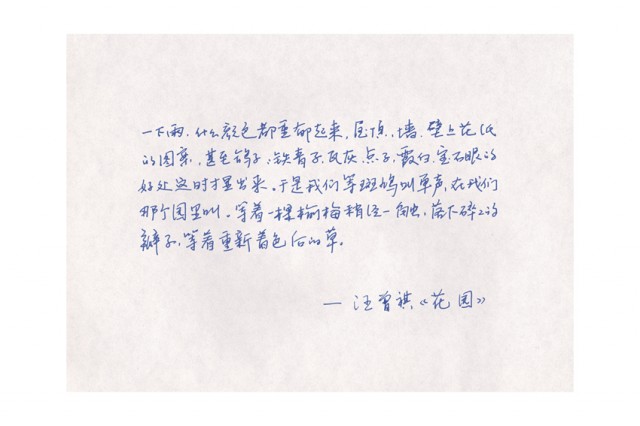 一下雨,什么颜色都重郁起来,屋顶,墙,壁上花纸
的图案,甚至鸽子:铁青子,瓦灰,点子,霞白。宝石眼的
好处这时才显出来。于是我们等斑鸠叫单声,在我们
那个园里叫。等着一棵榆梅稍经一触,落下碎碎的
瓣子,等着重新着色后的草。
— 汪曾祺《花园》